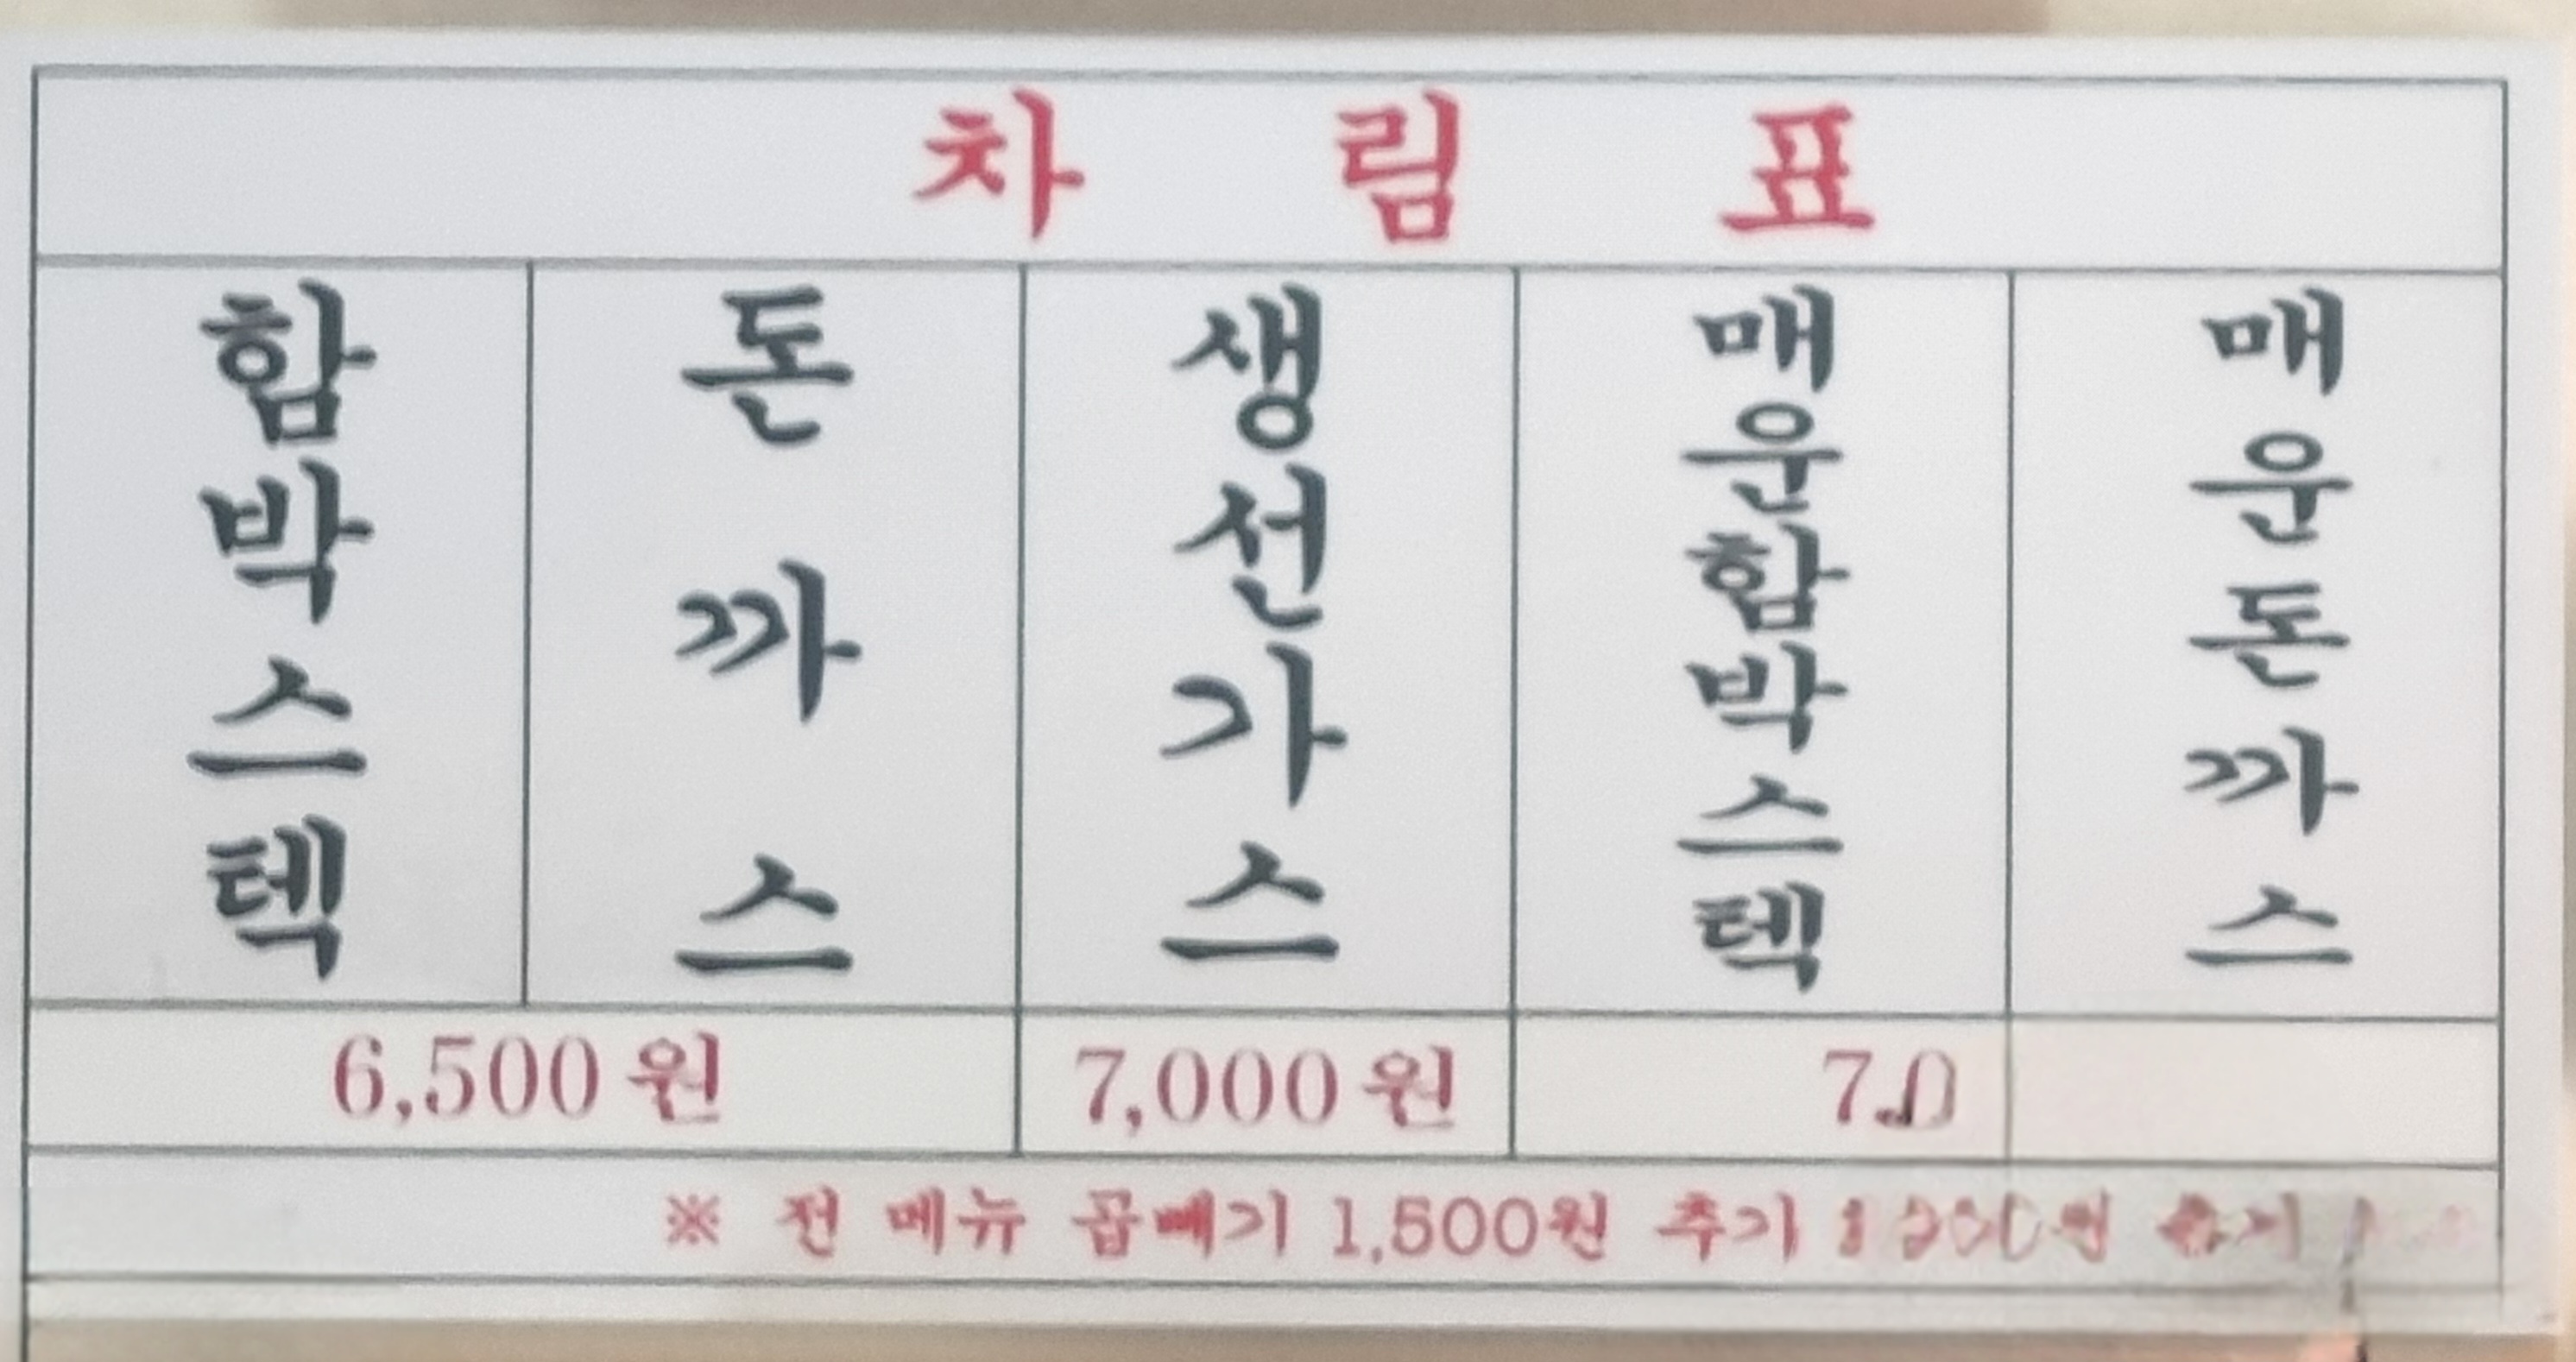 차 림 표
함박스텍
돈까스
생선가스
매운함박스텍
매운돈까스
6,500원
7,000원
※ 전 메뉴 곱빼기 1,500원 추가